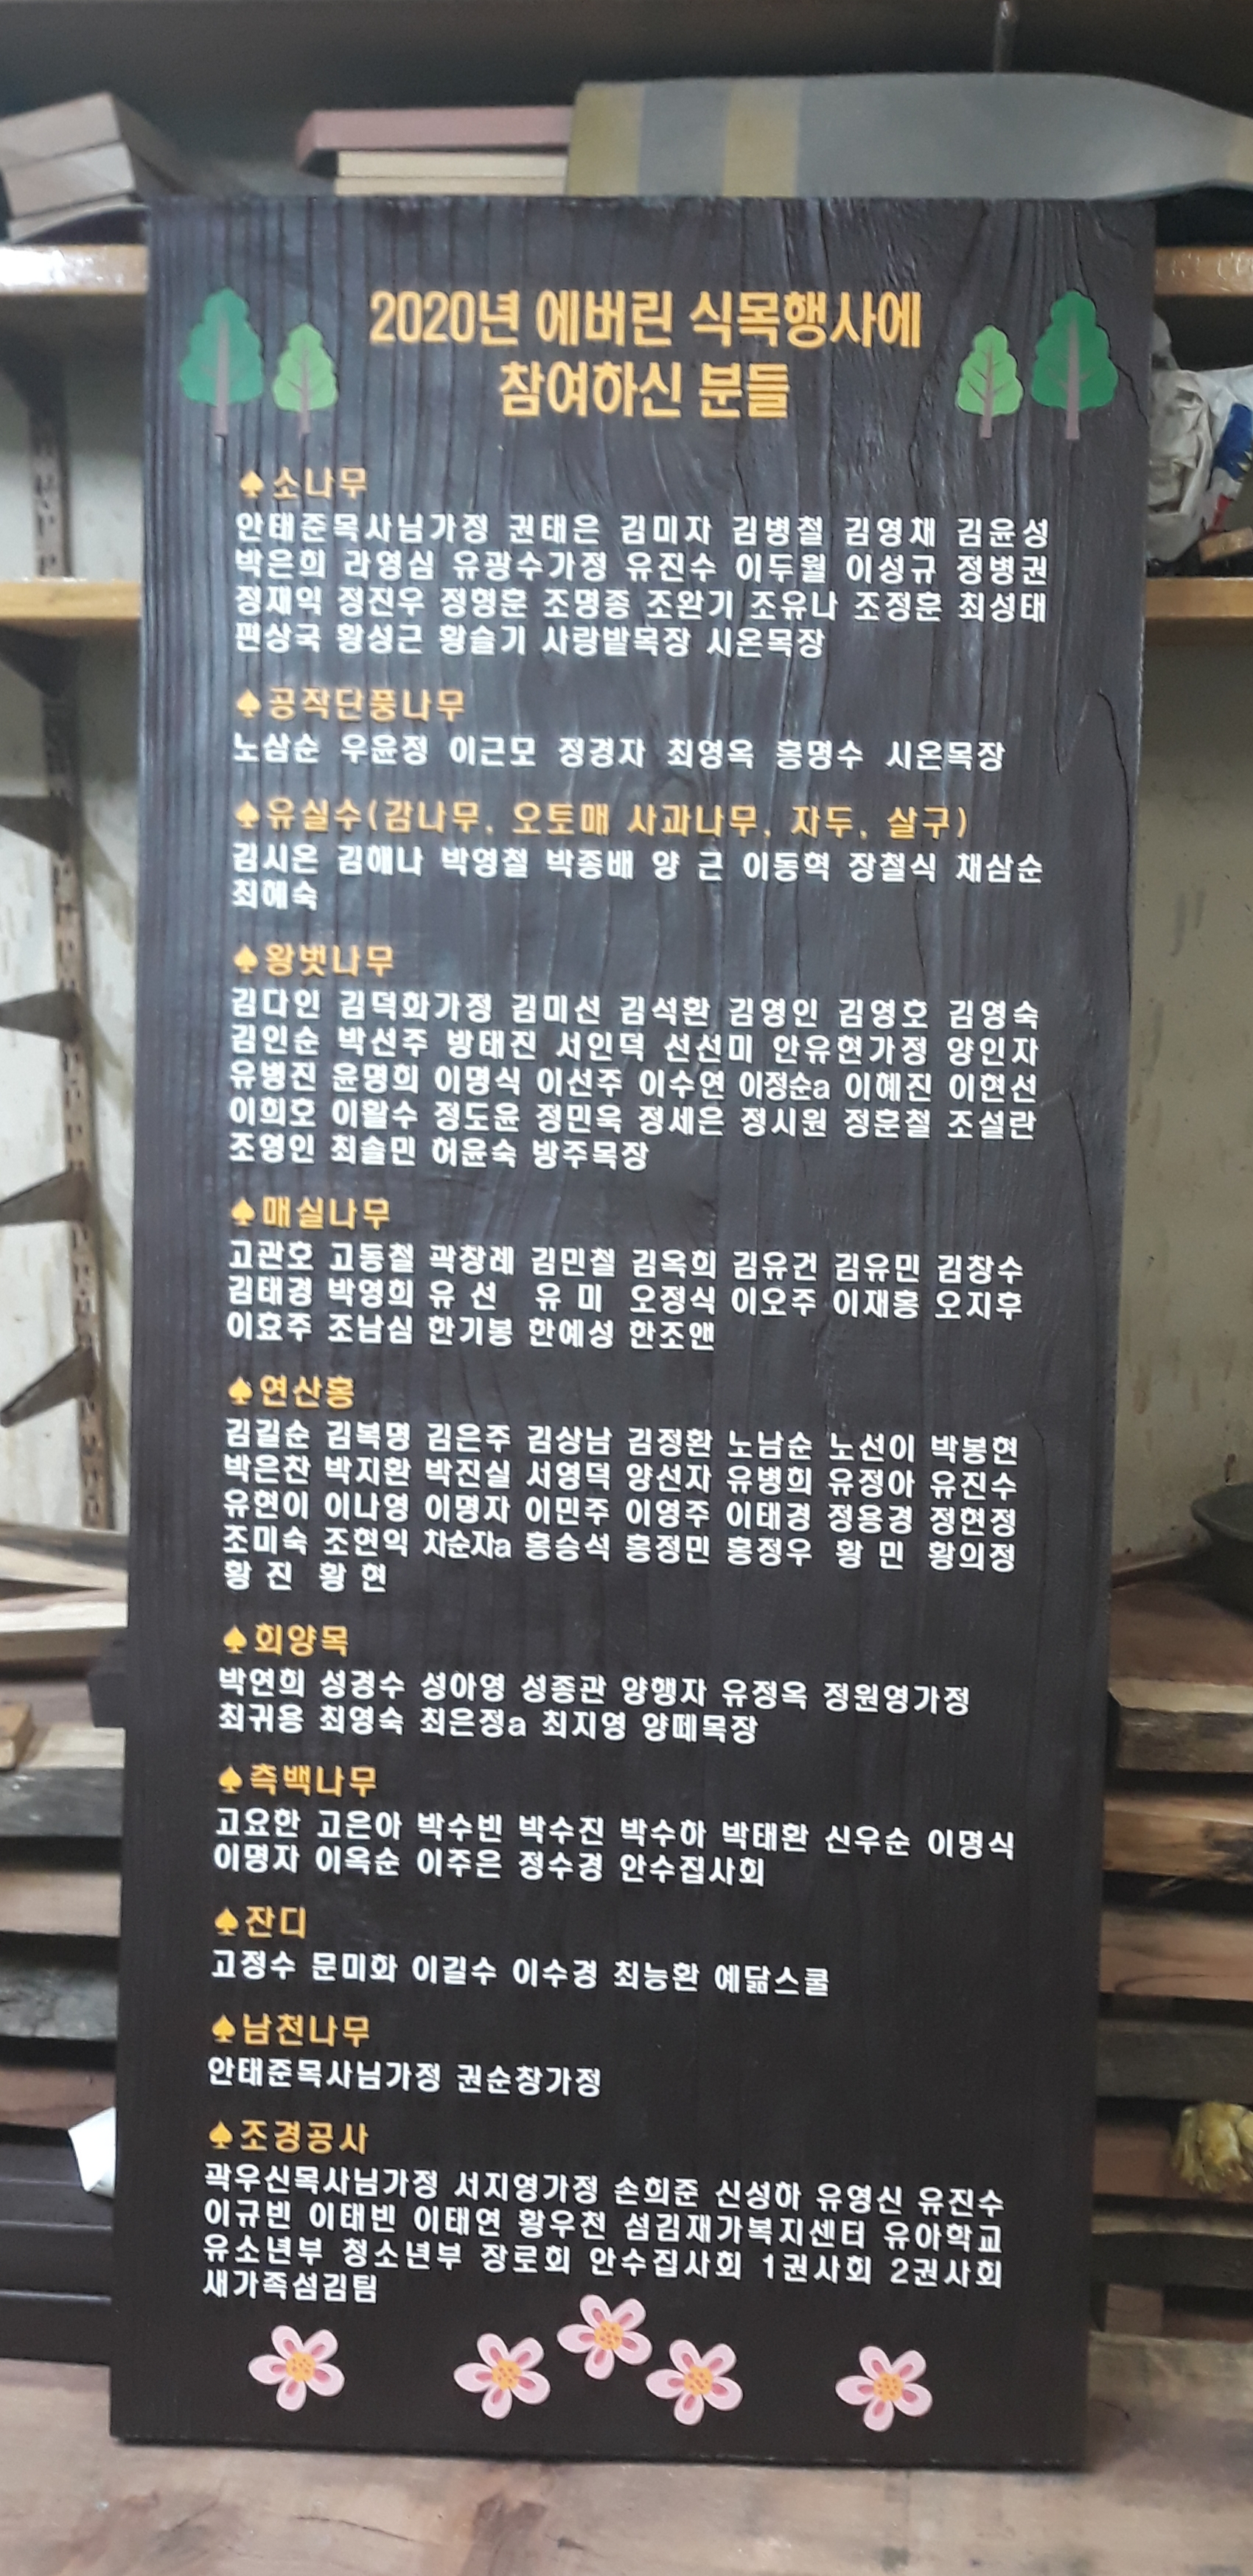 2020년 에버린 식목행사에
참여하신 분들
♠소나무
안태준목사님가정 권태은 김미자 김병철 김영채 김윤성
박은희 라영심 유광수가정 유진수 이두월 이성규 정병권
정재익 정진우 정형훈 조명종 조완기 조유나 조정훈 최성태
편상국 황성근 황슬기 사랑밭목장 시온목장
♠공작단풍나무
노삼순 우윤정 이근모 정경자 최영옥 홍명수 시온목장
♠유실수(감나무, 오토매 사과나무, 자두, 살구)
김시온 김해나 박영철 박종배 양 근 이동혁 장철식 채삼순
최혜숙
♠왕벗나무
김다인 김덕화가정 김미선 김석환 김영인 김영호 김영숙
김인순 박선주 방태진 서인덕 선선미 안유현가정 양인자
유병진 윤명희 이명식 이선주 이수연 이정순a 이혜진 이현선
이희호 이활수 정도윤 정민욱 정세은 정시원 정훈철 조설란
조영인 최솔민 허윤숙 방주목장
♠매실나무
고관호 고동철 곽창례 김민철 김옥희 김유건 김유민 김창수
김태경 박영희 유 선 유 미 오정식 이오주 이재홍 오지후
이효주 조남심 한기봉 한예성 한조앤
♠연산홍
김길순 김복명 김은주 김상남 김정환 노남순 노선이 박봉현
박은찬 박지환 박진실 서영덕 양선자 유병희 유정아 유진수
유현이 이나영 이명자 이민주 이영주 이태경 정용경 정현정
조미숙 조현익 차순자a 홍승석 홍정민 홍정우 황 민 황의정
황 진 황 현
♠회양목
박연희 성경수 성아영 성종관 양행자 유정옥 정원영가정
최귀용 최영숙 최은정a 최지영 양떼목장
♠측백나무
고요한 고은아 박수빈 박수진 박수하 박태환 신우순 이명식
이명자 이옥순 이주은 정수경 안수집사회
♠잔디
고정수 문미화 이길수 이수경 최능환 예닮스쿨
♠남천나무
안태준목사님가정 권순창가정
♠조경공사
곽우신목사님가정 서지영가정 손희준 신성하 유영신 유진수
이규빈 이태빈 이태연 황우천 섬김재가복지센터 유아학교
유소년부 청소년부 장로회 안수집사회 1권사회 2권사회
새가족섬김팀